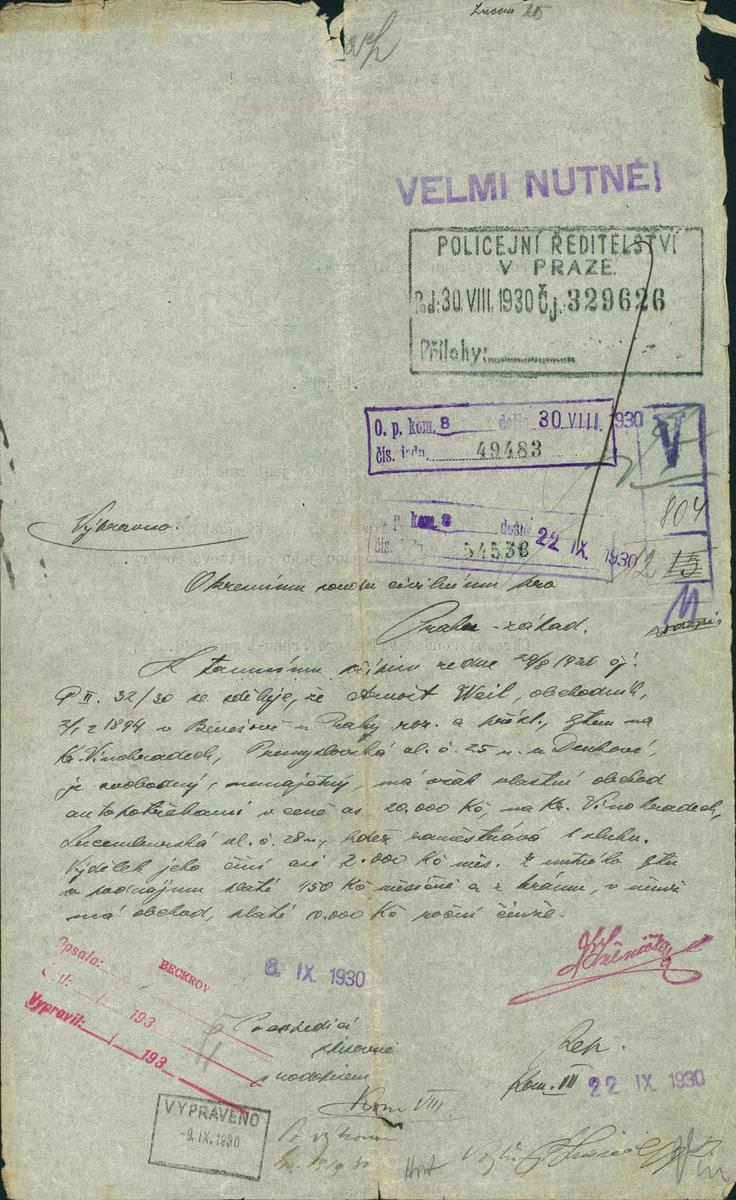 VELMI NUTNÉ!
POLICEJNÍ ŘEDITELSTVÍ
V PRAZE.
Pod: 30. VIII. 1930 Čj. 329626
Přílohy:
O. p. kom. 8 došlo 30 VIII. 1930
čís. jedn. 49483
V
804
P. kom. 8 došlo 22 IX. 1930
čís. 54538
12 15
Vypraveno.
Okresnímu soudu civilnímu pro
Prahu - západ.
K tamnímu přípisu ze dne 29/8 1930 čj:
P II. 32/30 se sděluje, že Arnošt Weil, obchodník,
1894 v Benešově u Prahy nar. a přísl., bytem na
Kr. Vinohradech, Přemyslovská ul. č. 25 n. u Deutschové,
je svobodný, nemajetný, má však vlastní obchod
autopotřebami v ceně as 20.000 Kč, na Kr. Vinohradech,
Lucemburská ul. č. 28 n., kdež zaměstnává 1 sluhu.
Výdělek jeho činí asi 2.000 Kč měs. Z bytu
v podnájmu platí 450 Kč měsíčně a z krámu, v němž
má obchod, platí 10.000 Kč roční činže.
Opsala: BECKROV
d: / 193
Vypravil: / 193
8. IX. 1930
spisovně
s podpisem
Kom VIII.
Rep.
Kom. VIII 22 IX. 1930
VYPRAVENO
-9. IX. 1930